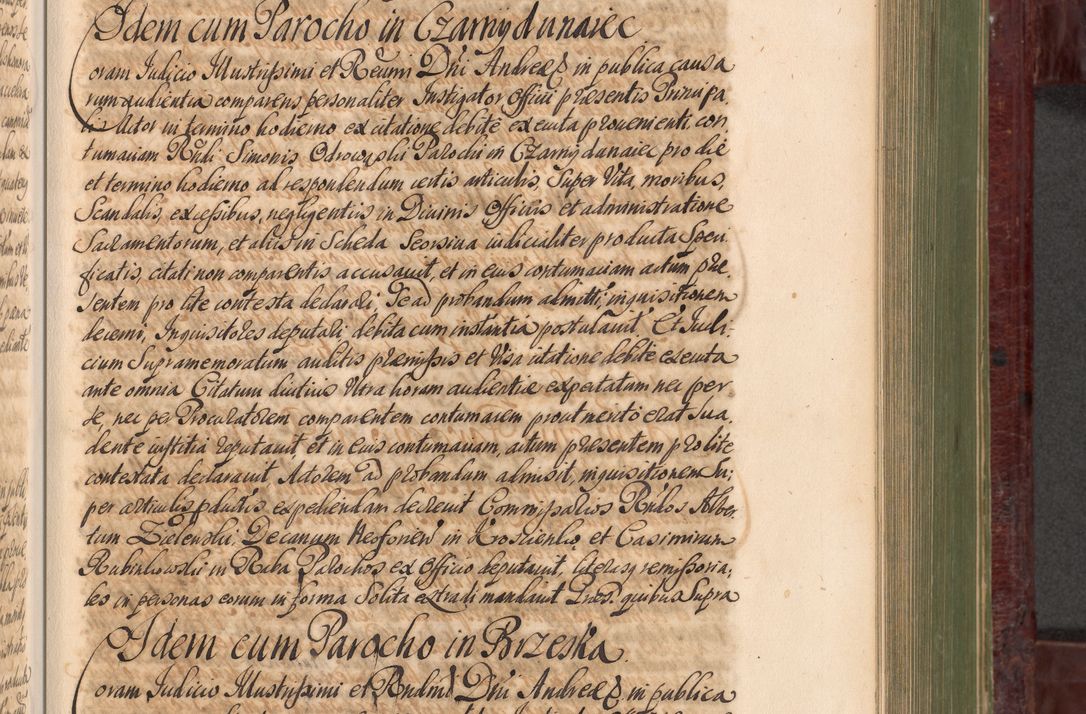 Idem cum Parocho in Czarnydunaiec
Coram Iudicio Illustrissimi et Reumi Dni Andreæ in publica causa
rum audientia comparens personaliter Instigator Officii præsentis Principa
lis Actor in termino hodierno ex citatione debite executa provenienti, con
tumaciam Rndi Simonis Odrowąski Parochi in Czarnydunaiec pro die
et termino hodierno ad respondendum certis articulis, Super Vita, moribus,
Scandalis, excessibus, negligentiis in Divinis Officiis et administratione
Sacramentorum, et aliis in Scheda Seorsiva iudicialiter producta Speci
ficatis, citati non comparentis accusavit, et in eius contumaciam actum præ
sentem pro lite contesta declarari, Se ad probandum admitti, inquisitionem
decerni, Inquisitores deputari debita cum instantia postulavit. Et Iudi
cium Supramemoratum auditis præmissis et Visa citatione debite executa
ante omnia Citatum diutius Ultra horam audientiæ expectatum nec per
se, nec per Procuratorem comparentem contumacem prout merito erat Sua
dente iustitia reputavit et in eius contumaciam, actum præsentem pro lite
contestata declaravit Actorem ad probandum admisit, inquisitionem Su
per articulis pductis expediendam decrevit Commissarios Rndos Alber
tum Zielenski Decanum Neoforien in Krościenko et Casimirum
Rubinkowski in Raba Parochos ex Officio deputavit, literasq remissoria
les in personas eorum in forma Solita extradi mandavit Præs. quibus Supra
Idem cum Parocho in Brzeska.
Coram Iudicio Illustrissimi et Rndmi Dni Andreæ in publica